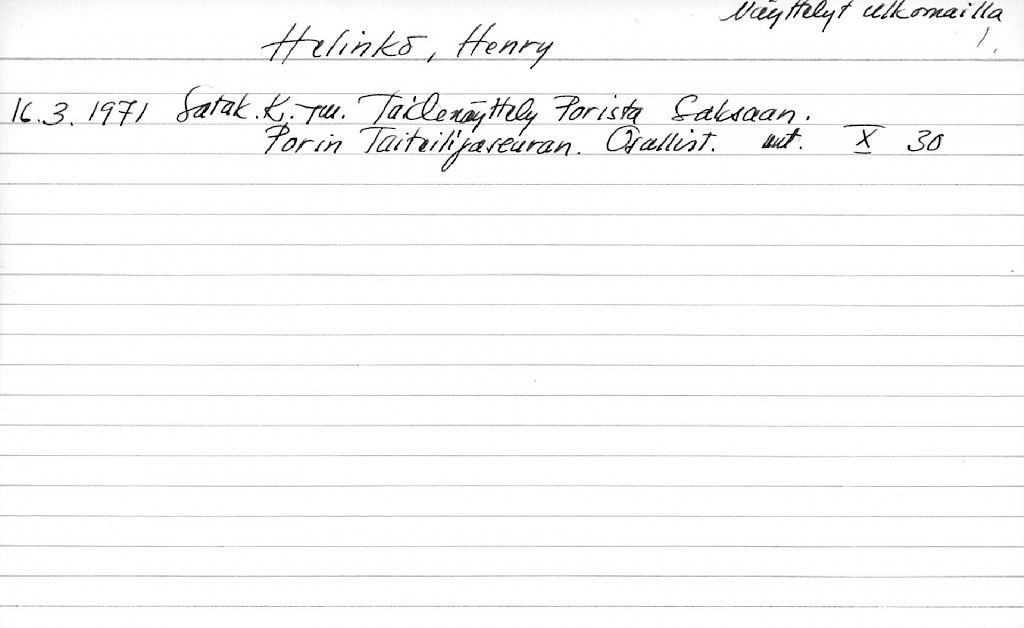 Näyttelyt ulkomailla
1.
Helinkö, Henry
16.3.1971 Satak. K. Taidenäyttely Porista Saksaan.
Porin Taiteilijaseuran. Osallist. mt. X 30